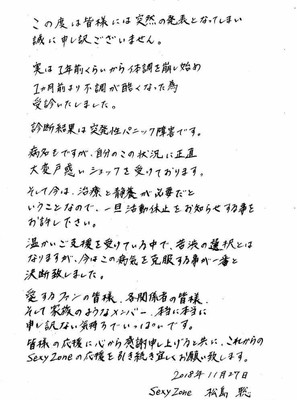 この度は皆様には突然の発表となってしまい
誠に申し訳ございません。
実は1年前くらいから体調を崩し始め
1ヶ月前より不調が酷くなった為
受診いたしました。
診断結果は突発性パニック障害です。
病名もですが、自分のこの状況に正直
大変戸惑いショックを受けております。
そして今は、治療と静養が必要だと
いうことなので、一旦活動休止をお知らせする事を
お許し下さい。
温かいご支援を受けている中で、苦渋の選択とは
なりますが、今はこの病気を克服する事が一番と
決断致しました。
愛するファンの皆様、各関係者の皆様、
そして家族のようなメンバー、本当に本当に
申し訳ない気持ちでいっぱいです。
皆様の応援に心から感謝申し上げると共に、これからの
Sexy Zoneの応援を引き続き宜しくお願い致します。
2018年11月27日
Sexy Zone 松島 聡